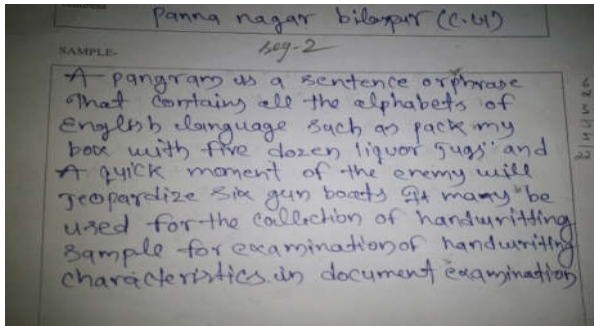 Panna nagar bilaspur (C.G)
SAMPLE-
seg-2
A pangram is a sentence or phrase
that contains all the alphabets of
English language such as pack my
box with five dozen liquor jugs" and
A quick moment of the enemy will
jeopardize six gun boats It many be
used for the collection of handwritting
sample for examination of handwriting
characteristics. in document examination